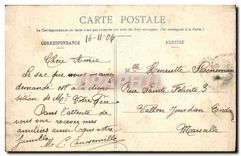 CARTE POSTALE
La Correspondance au recto n'est pas acceptée par tous les Pays étrangers. (Se renseigner à la Poste.)
CORRESPONDANCE
ADRESSE
16-11-06
Chère Amie
Le sac que vous avez
demandé est à la dispo
sition de Mr Votre Père
Dans l'attente de
vous voir recevez mes
amitiés ainsi que votre
famille
Melle Henriette
Rue Sainte Félicité 3
Vallon
Marseille